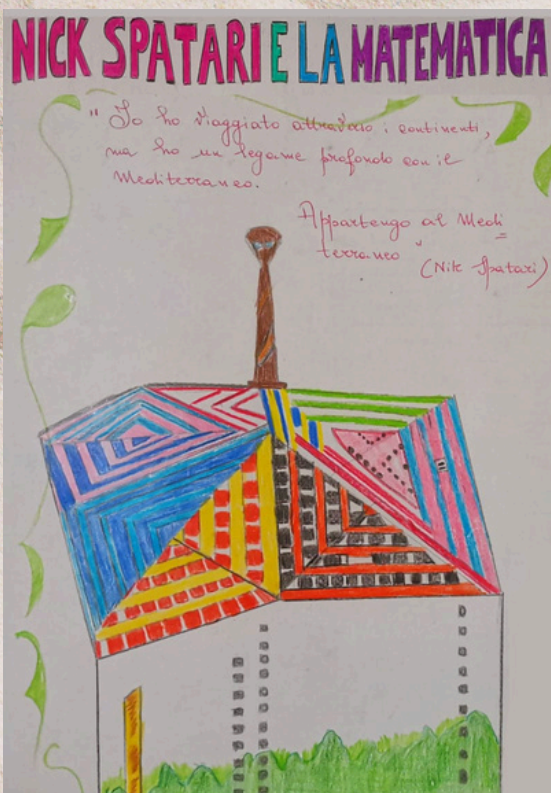 NICK SPATARI E LA MATEMATICA
"Io ho viaggiato attraverso i continenti,
ma ho un legame profondo con il
Mediterraneo.
Appartengo al Medi
=
terraneo"
(Nik Spatari)